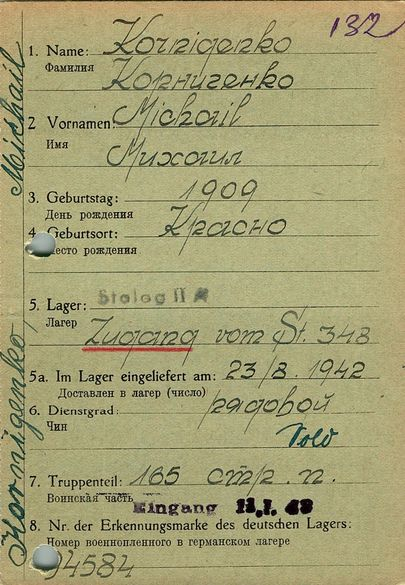 132
1. Name: Kornigenko
Фамилия Корниченко
2 Vornamen: Michail
Имя
Михаил
3. Geburtstag: 1909
День рождения
4. Geburtsort: Красно
Место рождения
5. Lager: Stalag II A
Лагер
Zugang vom St. 348
5a. Im Lager eingeliefert am: 23/8. 1942
Доставлен в лагер (число)
6. Dienstgrad: рядовой
Чин
Sold
7. Truppenteil: 165 стр. п.
Воинская часть
Eingang
8. Nr. der Erkennungsmarke des deutschen Lagers:
Номер военнопленного в германском лагере
94584
Kornigenko, Michail